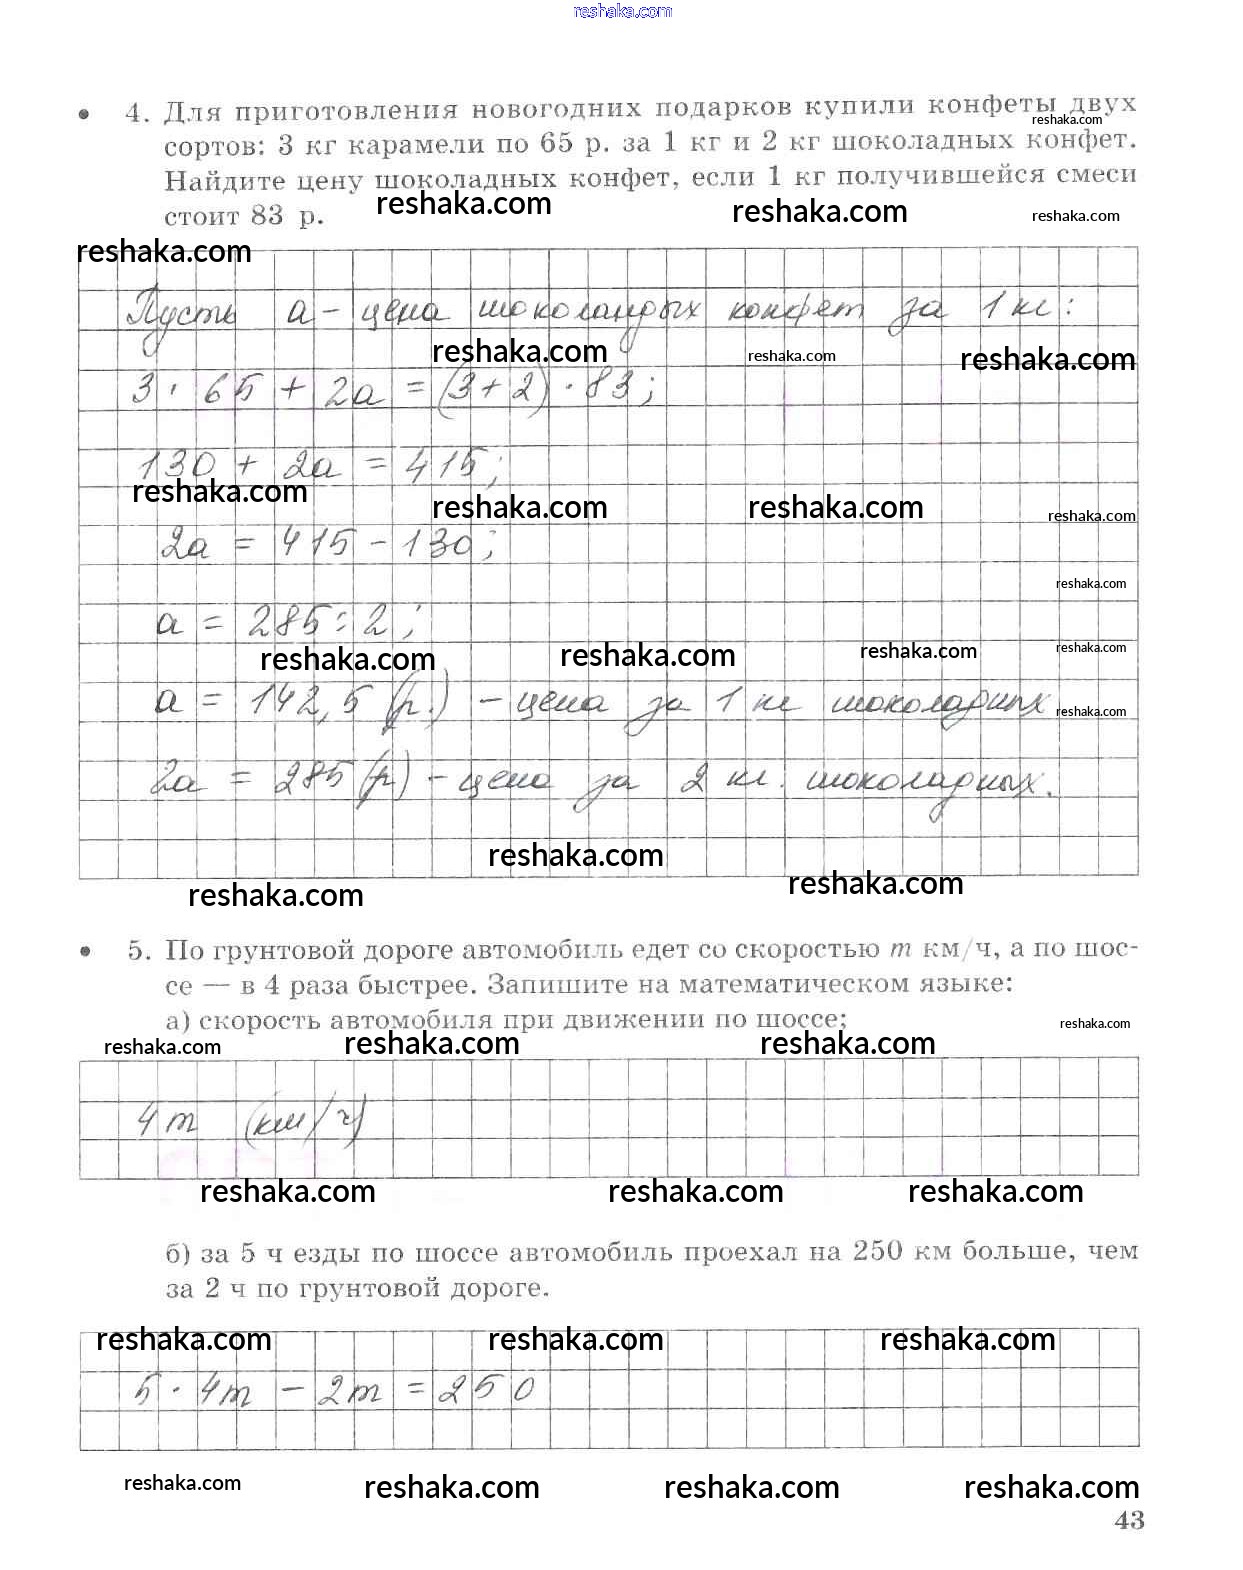 reshaka.com
• 4. Для приготовления новогодних подарков купили конфеты двух
reshaka.com
сортов: 3 кг карамели по 65 р. за 1 кг и 2 кг шоколадных конфет.
Найдите цену шоколадных конфет, если 1 кг получившейся смеси
стоит 83 р.
reshaka.com reshaka.com reshaka.com
reshaka.com
Пусть а - цена шоколандрых конфет за 1 кг:
reshaka.com reshaka.com reshaka.com
3 · 65 + 2а = (3+2) · 83;
130 + 2а = 415;
reshaka.com reshaka.com reshaka.com reshaka.com
2а = 415 - 130;
reshaka.com
а = 285 : 2;
reshaka.com reshaka.com reshaka.com reshaka.com
а = 142,5 (р.) - цена за 1 кг шоколадных
reshaka.com
2а = 285 (р) - цена за 2 кг. шоколадных.
reshaka.com
reshaka.com reshaka.com
• 5. По грунтовой дороге автомобиль едет со скоростью m км/ч, а по шос-
се — в 4 раза быстрее. Запишите на математическом языке:
а) скорость автомобиля при движении по шоссе;
reshaka.com reshaka.com reshaka.com reshaka.com
4m (км/ч)
reshaka.com reshaka.com reshaka.com
б) за 5 ч езды по шоссе автомобиль проехал на 250 км больше, чем
за 2 ч по грунтовой дороге.
reshaka.com reshaka.com reshaka.com
5 · 4m - 2m = 250
reshaka.com reshaka.com reshaka.com reshaka.com
43